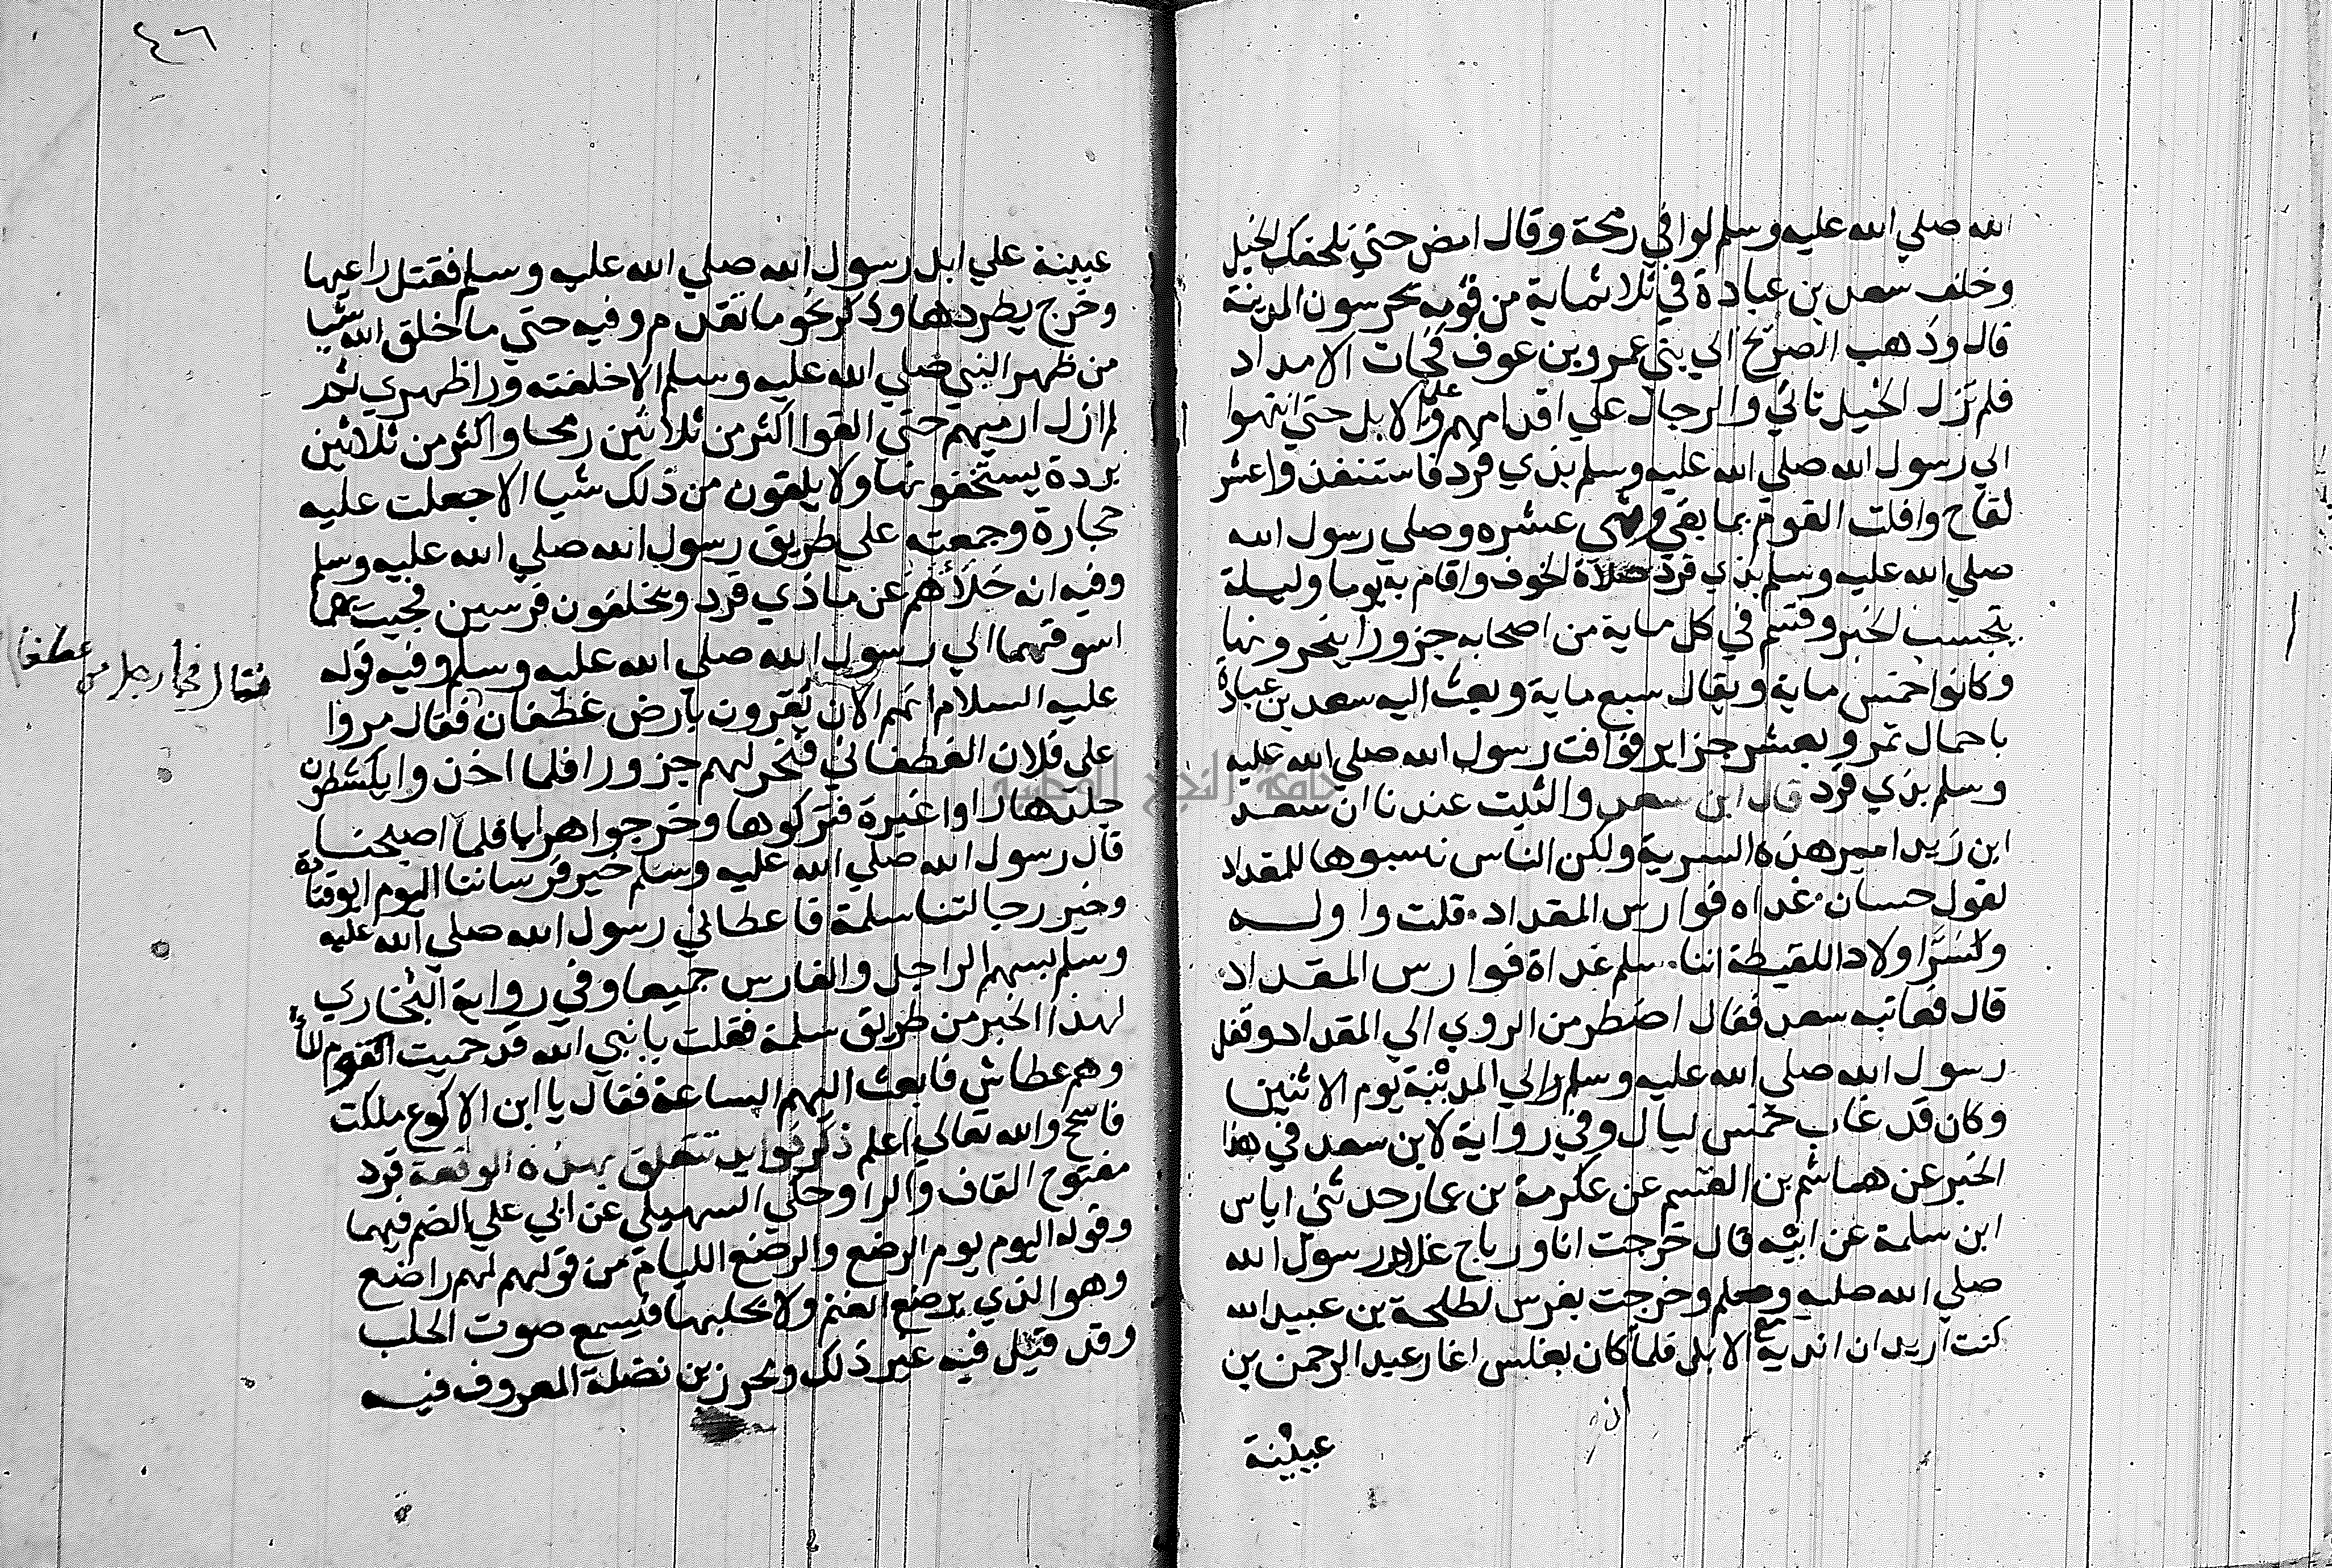 الله صلي الله عليه وسلم لوا في رمحة وقال امض حتي تلحقك الخيل
وخلف سعد بن عبادة في ثلاثماية من قومه يحرسون المدينة
قال وذهب الصريخ الي بني عمرو بن عوف فجات الامداد
فلم تزل الخيل تاتي والرجال علي اقدامهم وعلي الابل حتي انتهوا
الي رسول الله صلي الله عليه وسلم بذي قرد فاستنقذوا عشر
لقاح وافلت القوم بما بقي وهي عشره وصلي رسول الله
صلي الله عليه وسلم بذي قرد صلاة الخوف واقام به يوما وليلة
يتحسب الخبر وقسم في كل ماية من اصحابه جزورا ينحرونها
وكانوا خمس ماية ويقال سبع ماية وبعث اليه سعد بن عبادة
باحمال تمر وبعشر جزاير فوافت رسول الله صلي الله عليه
وسلم بذي قرد قال ابن سعد والثبت عندنا ان سعد
ابن زيد امير هذه السرية ولكن الناس نسبوها للمقداد
لقول حسان غداه فوارس المقداد قلت واوله
ولسر اولاد اللقيطة اننا سلم غداة فوارس المقداد
قال فعاتبه سعد فقال اضطر من الروي الي المقداد وقفل
رسول الله صلي الله عليه وسلم الي المدينة يوم الاثنين
وكان قد غاب خمس ليال وفي رواية لابن سعد في هذا
الخبر عن هاشم بن القسم عن عكرمة بن عمار حدثني اياس
ابن سلمة عن ابيه قال خرجت انا ورباح غلام رسول الله
صلي الله عليه وسلم وخرجت بفرس لطلحة بن عبيد الله
كنت اريد ان انديه مع الابل فلما كان بغلس اغار عبد الرحمن بن
عيينة
٤٦
عيينة علي ابل رسول الله صلي الله عليه وسلم فقتل راعيها
وخرج يطردها وذكر نحو ما تقدم وفيه حتي ما خلق الله شيا
من ظهر النبي صلي الله عليه وسلم الا خلفته ورا ظهري ثم
لم ازل ارميهم حتي القوا اكثر من ثلاثين رمحا واكثر من ثلاثين
بردة يستخفونها ولا يلقون من ذلك شيا الا جعلت عليه
حجارة وجمعته علي طريق رسول الله صلي الله عليه وسلم
وفيه انه حلأهم عن ما ذي قرد ويخلفون فرسين فجيت بهما
اسوقهما الي رسول الله صلي الله عليه وسلم وفيه قوله
عليه السلام انهم الان يقرون بارض غطفان فقال مروا
فجا رجل من غطفان فقال
علي فلان الغطفاني فنحر لهم جزورا فلما اخذوا يكشطون
جلدها راوا غبرة فتركوها وخرجوا هرابا فلما اصبحنا
قال رسول الله صلي الله عليه وسلم خير فرساننا اليوم ابو قتادة
وخير رجالتنا سلمة فاعطاني رسول الله صلي الله عليه
وسلم بسهم الراجل والفارس جميعا وفي رواية البخاري
لهذا الخبر من طريق سلمة فقلت يا نبي الله قد حميت القوم الماء
وهم عطاش فابعث اليهم الساعة فقال يا ابن الاكوع ملكت
فاسجح والله تعالي اعلم ذكر فوايد تتعلق بهذه الوقعة قرد
مفتوح القاف والرا وحكي السهيلي عن ابي علي الضم فيهما
وقوله اليوم يوم الرضع والرضع الليام من قولهم لهم راضع
وهو الذي يرضع الغنم ولا يحلبها فيسمع صوت الحلب
وقد قيل فيه غير ذلك ومحرز بن نضلة المعروف فيه